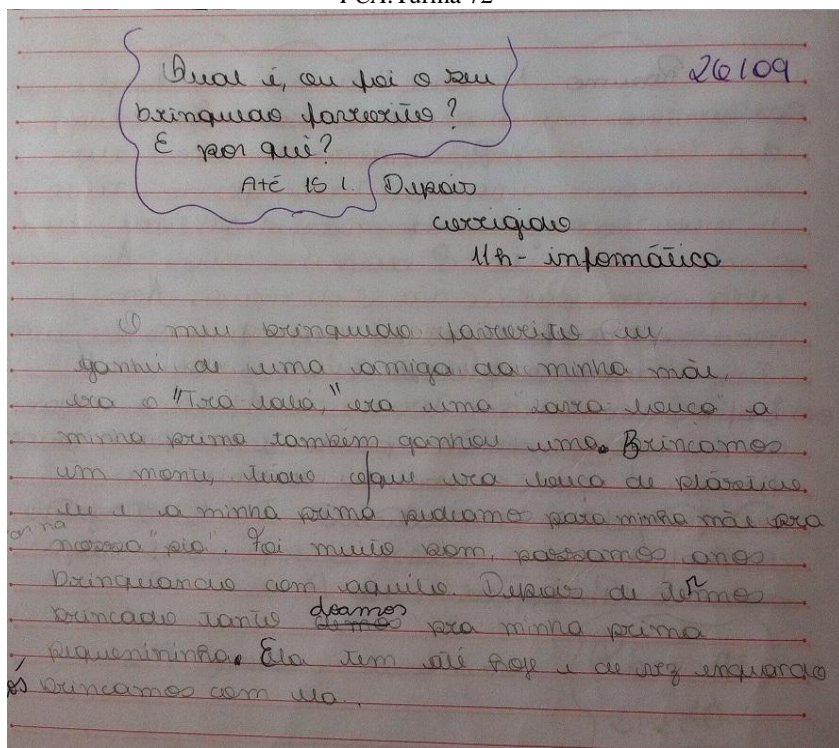 PCA:Turma 72
26/09
Qual é, ou foi o seu
brinquedo favorito?
E por quê?
Até 15 l. Depois
corrigido
11h - informática
O meu brinquedo favorito eu
ganhei de uma amiga da minha mãe,
era o "Tira daliá," era uma "lava louça" a
minha prima também ganhou uma. Brincamos
um monte, que era louca de plástico.
eu e a minha prima pediamos para minha mãe pra
na
nossa "pia". Foi muito bom, passamos anos
brinquando com aquilo. Depois de termos
brincado tanto doamos pra minha prima
piquenininha. Ela tem até hoje e de vez enquando
nós brincamos com ela.